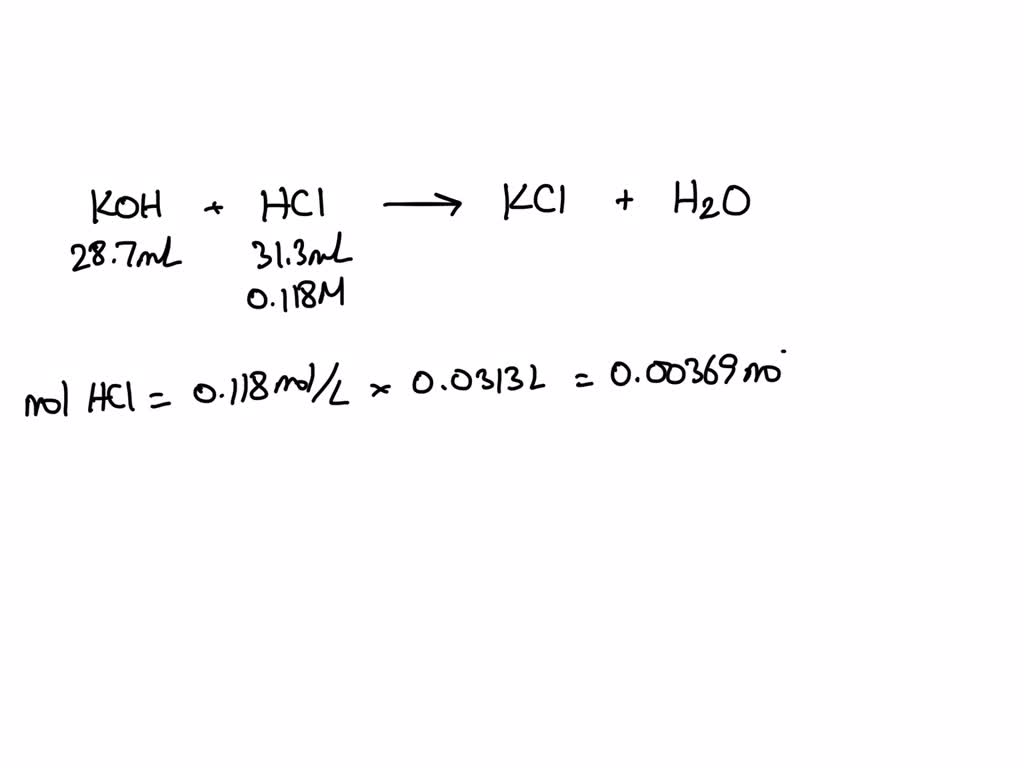 KOH + HCl → KCl + H2O
28.7mL 31.3mL
0.118M
mol HCl = 0.118 mol/L × 0.0313L = 0.00369 mo